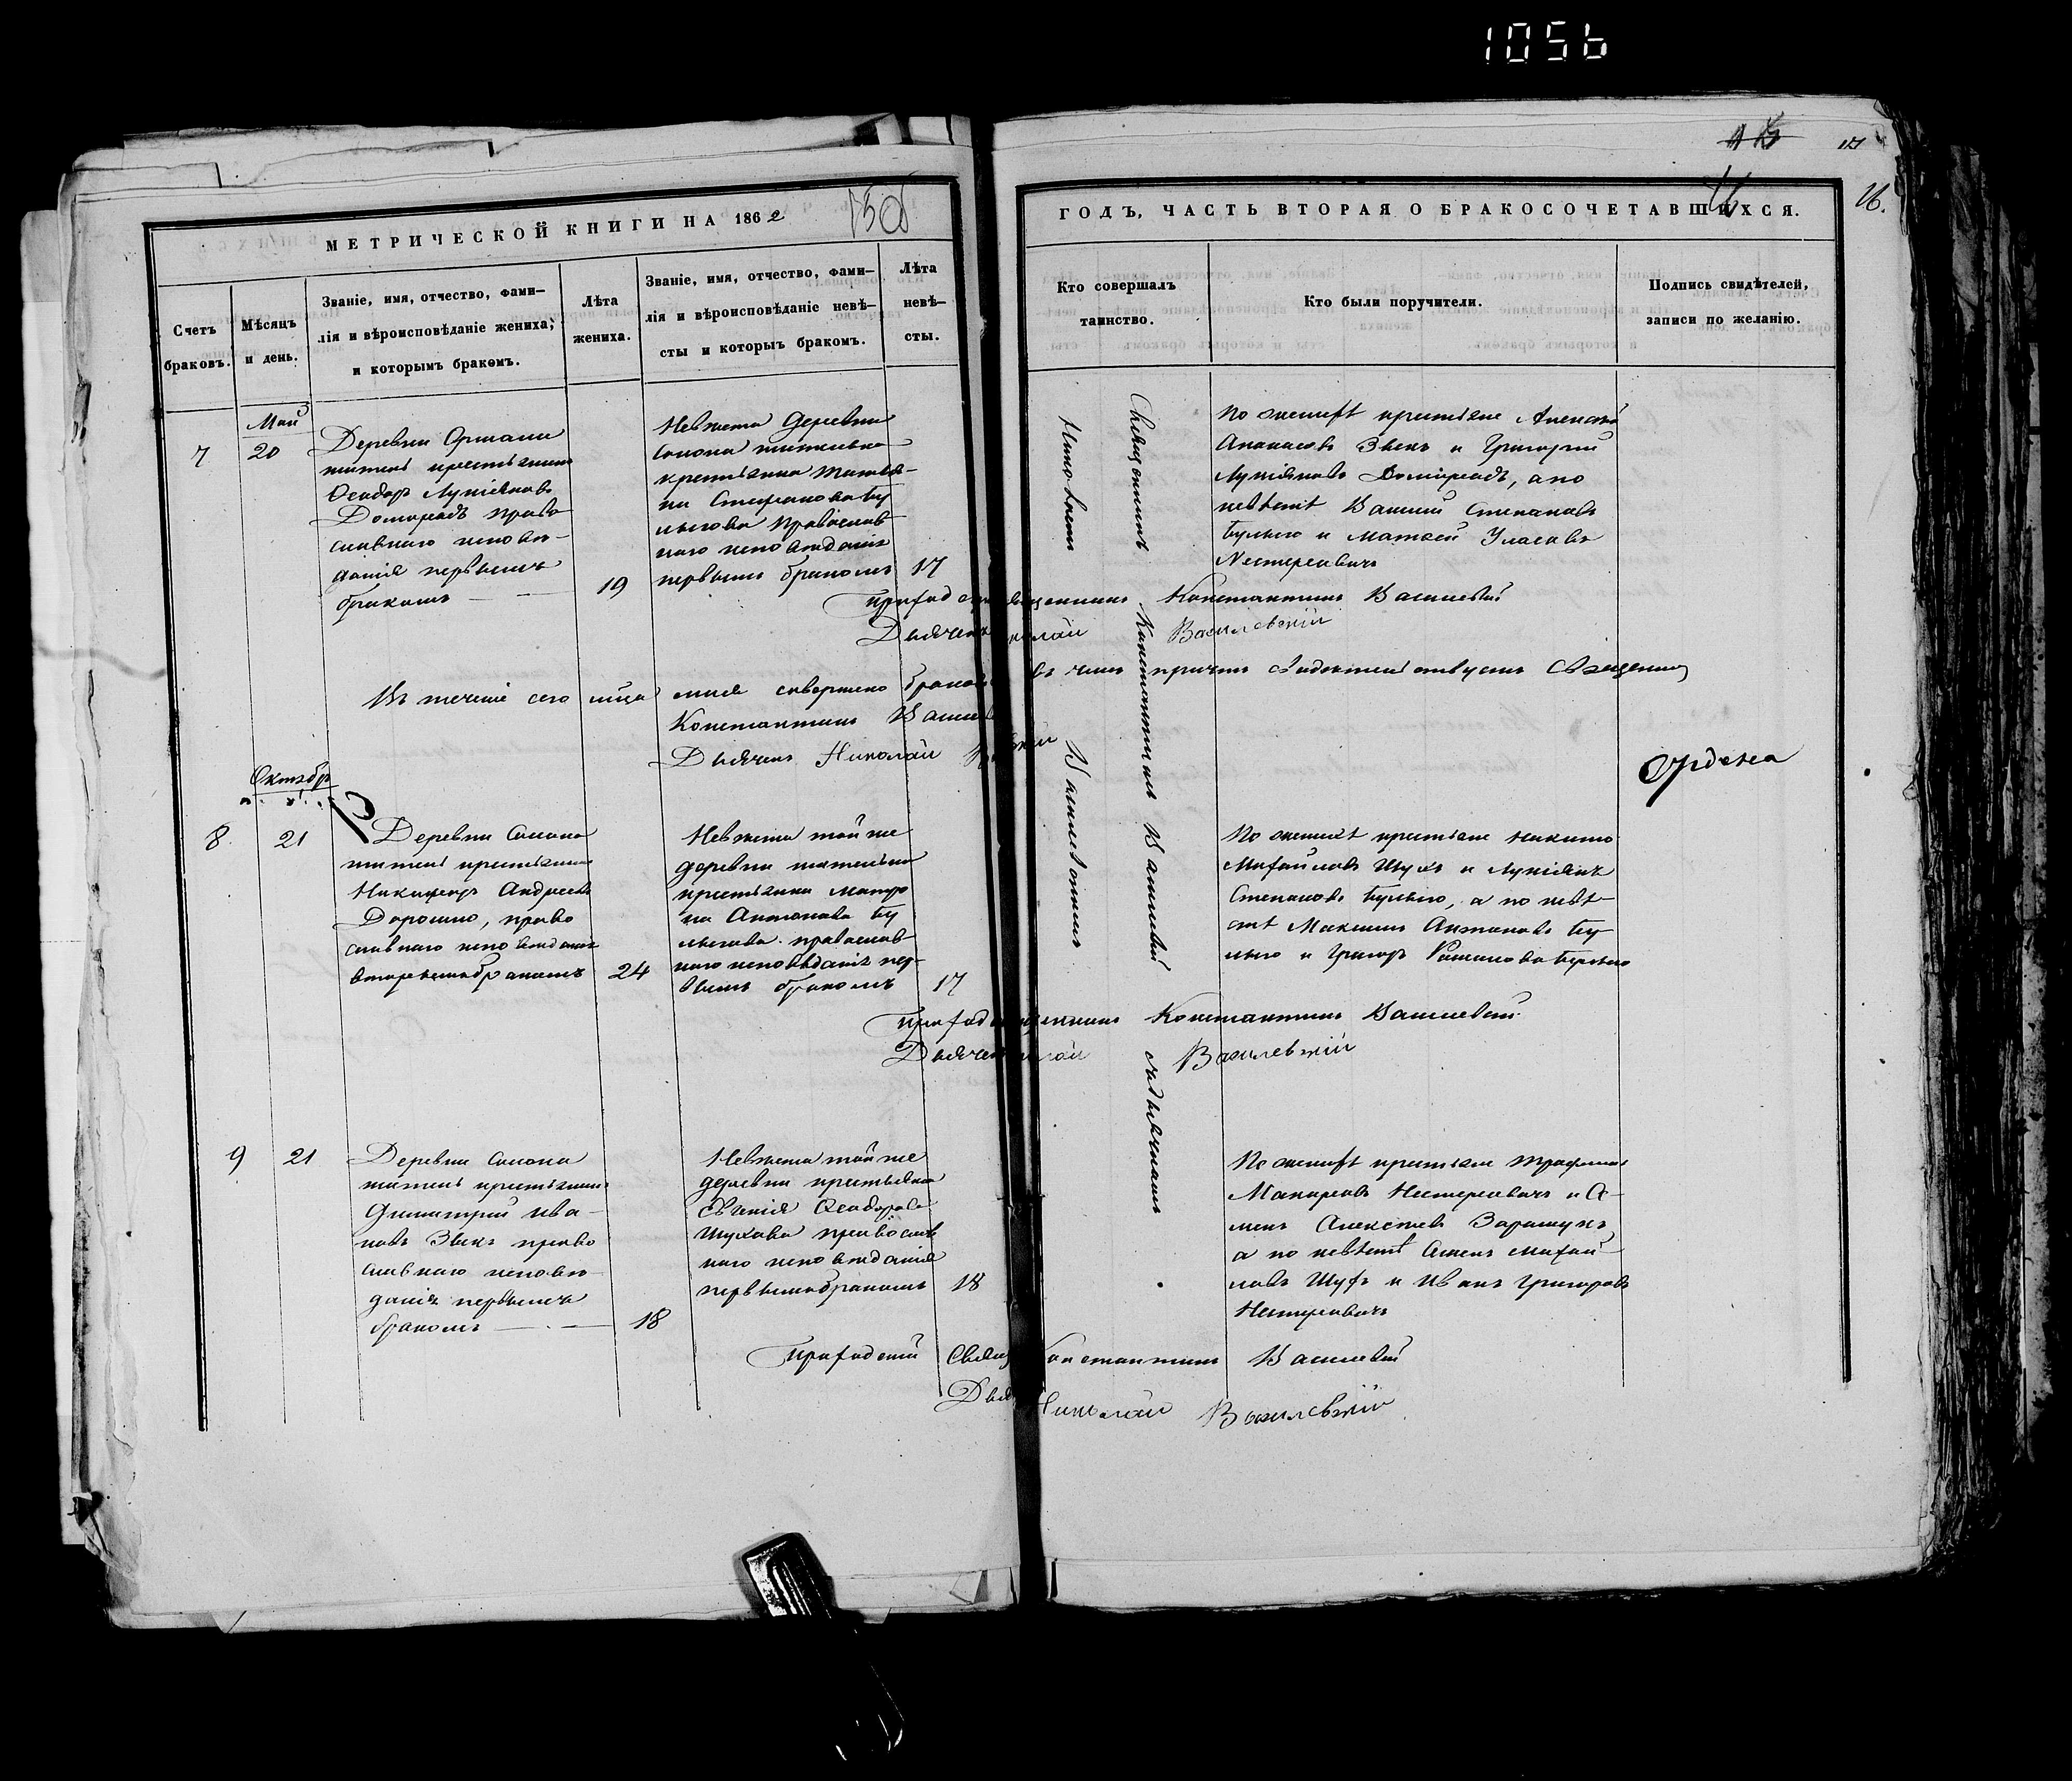 1056
17
16.
МЕТРИЧЕСКОЙ КНИГИ НА 1862
ГОДЪ, ЧАСТЬ ВТОРАЯ О БРАКОСОЧЕТАВШИХСЯ.
Счетъ
браковъ.
Мѣсяцъ
и день.
Званіе, имя, отчество, фами-
лія и вѣроисповѣданіе жениха,
и которымъ бракомъ.
Лѣта
жениха.
Званіе, имя, отчество, фами-
лія и вѣроисповѣданіе невѣ-
сты и которыъ бракомъ.
Лѣта
невѣ-
сты.
Кто совершалъ
таинство.
Кто были поручители.
Подпись свидѣтелей,
записи по желанію.
Май
7
20
Деревни
житель крестьянинъ
Ѳеодоръ Лукіяновъ
Домарадъ право
славнаго исповѣ-
данія первымъ
бракомъ
19
Невѣста Деревни
жительна
крестьянка Татья-
на Степанова Бу
льгова православ-
наго исповѣданія
первымъ бракомъ
17
Священникъ Константинъ Василевскій съ дьячкомъ
Николаемъ Василевскимъ
По женихѣ крестьяне Алексѣй
Звекъ и Григорій
Лукіяновъ Домарадъ, а по
невѣстѣ Василій Степановъ
Бульго и Матѳей Уласовъ
Нестеровичъ
Приход священникъ Константинъ Василевскій
Дьячекъ Николай Василевскій
Въ теченіе сего мѣсяца
совершено
въ чемъ причтъ свидѣтельствуетъ Священникъ
Константинъ
Дьячекъ Николай
Октябр
8.
21
Деревни
житель крестьянинъ
Никифоръ Андреевъ
Дорошко, право
славнаго исповѣданія
вторымъ бракомъ
24
Невѣста той же
деревни жительна
крестьянка Матро
на Антонова Бу
льгова православ-
наго исповѣданія пер-
вымъ бракомъ
17
По женихѣ крестьяне Никита
Михайловъ Шухъ и Лукіянъ
Степановъ Бульго, а по невѣ-
стѣ Максимъ Антоновъ Бу-
льго и Григоръ Романовъ Бульго
Приход священникъ Константинъ Василевскій
Дьячекъ Николай Василевскій
9
21
Деревни
житель крестьянинъ
Димитрій Ива-
новъ Звекъ право
славнаго исповѣ-
данія первымъ
бракомъ
18
Невѣста той же
деревни крестьянка
Евгенія Ѳеодорова
Шухова православ
наго исповѣданія
первымъ бракомъ
18
По женихѣ крестьяне Трофимъ
Макаровъ Нестеровичъ и Се-
менъ Алексѣевъ
а по невѣстѣ Семенъ Михай-
ловъ Шухъ и Иванъ Григоровъ
Нестеровичъ
Приходскій Священникъ Константинъ Василевскій
Дьячекъ Николай Василевскій